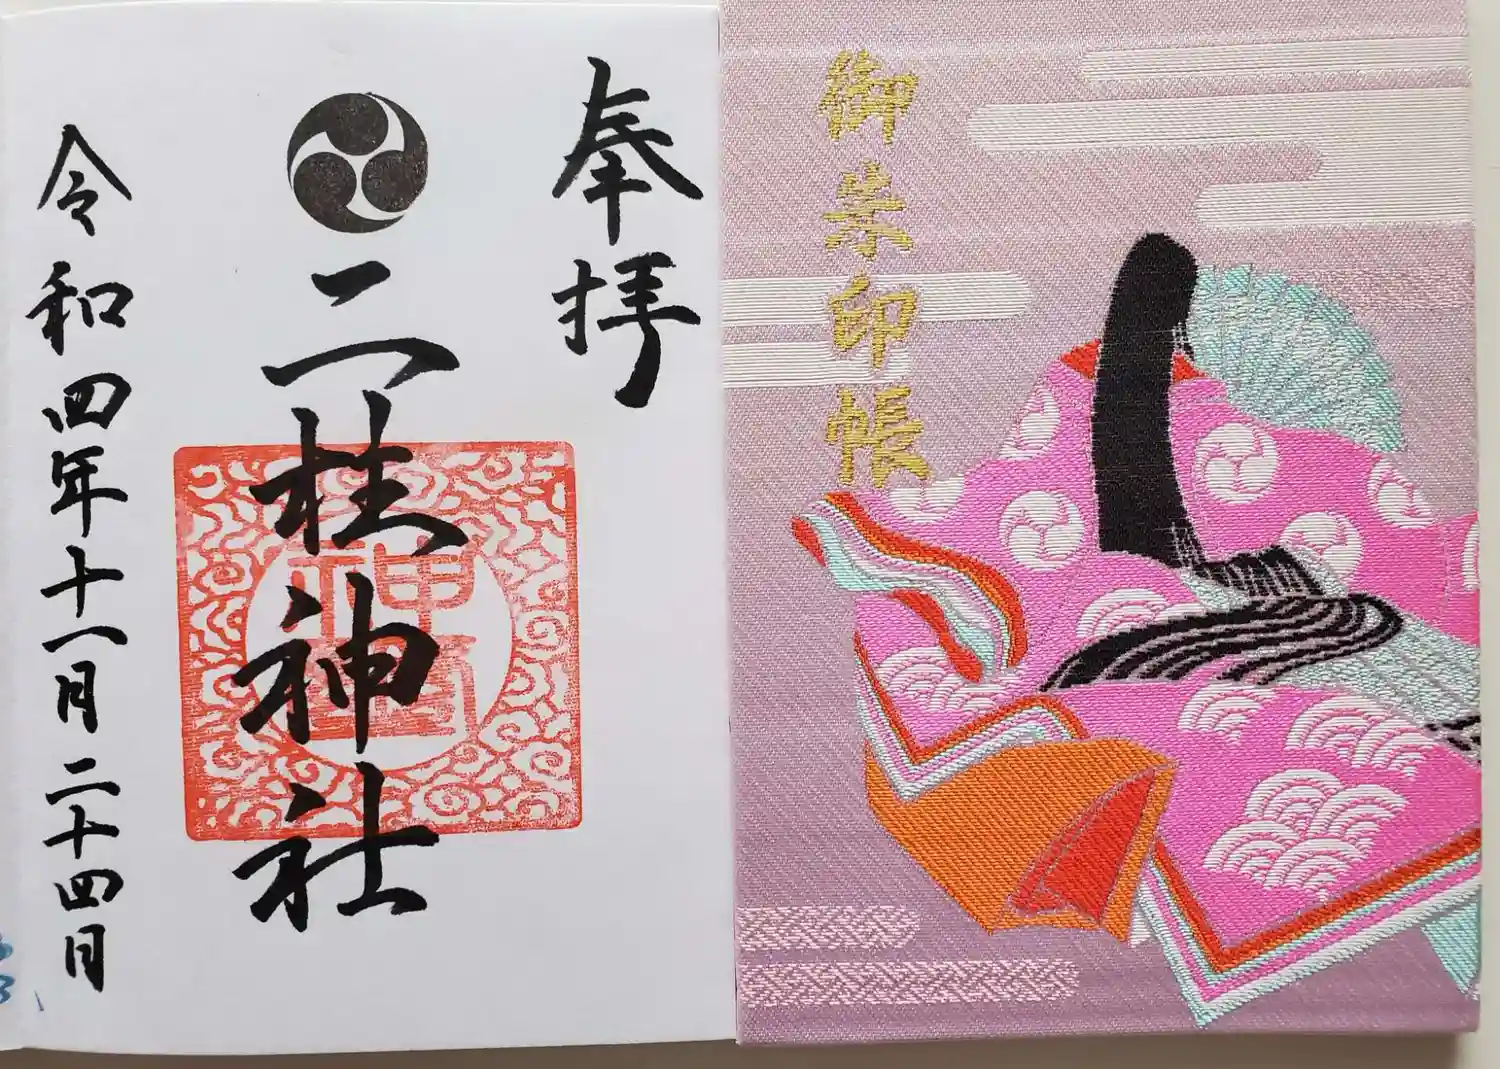 奉拝
二柱神社
令和四年十一月二十四月
御朱印帳